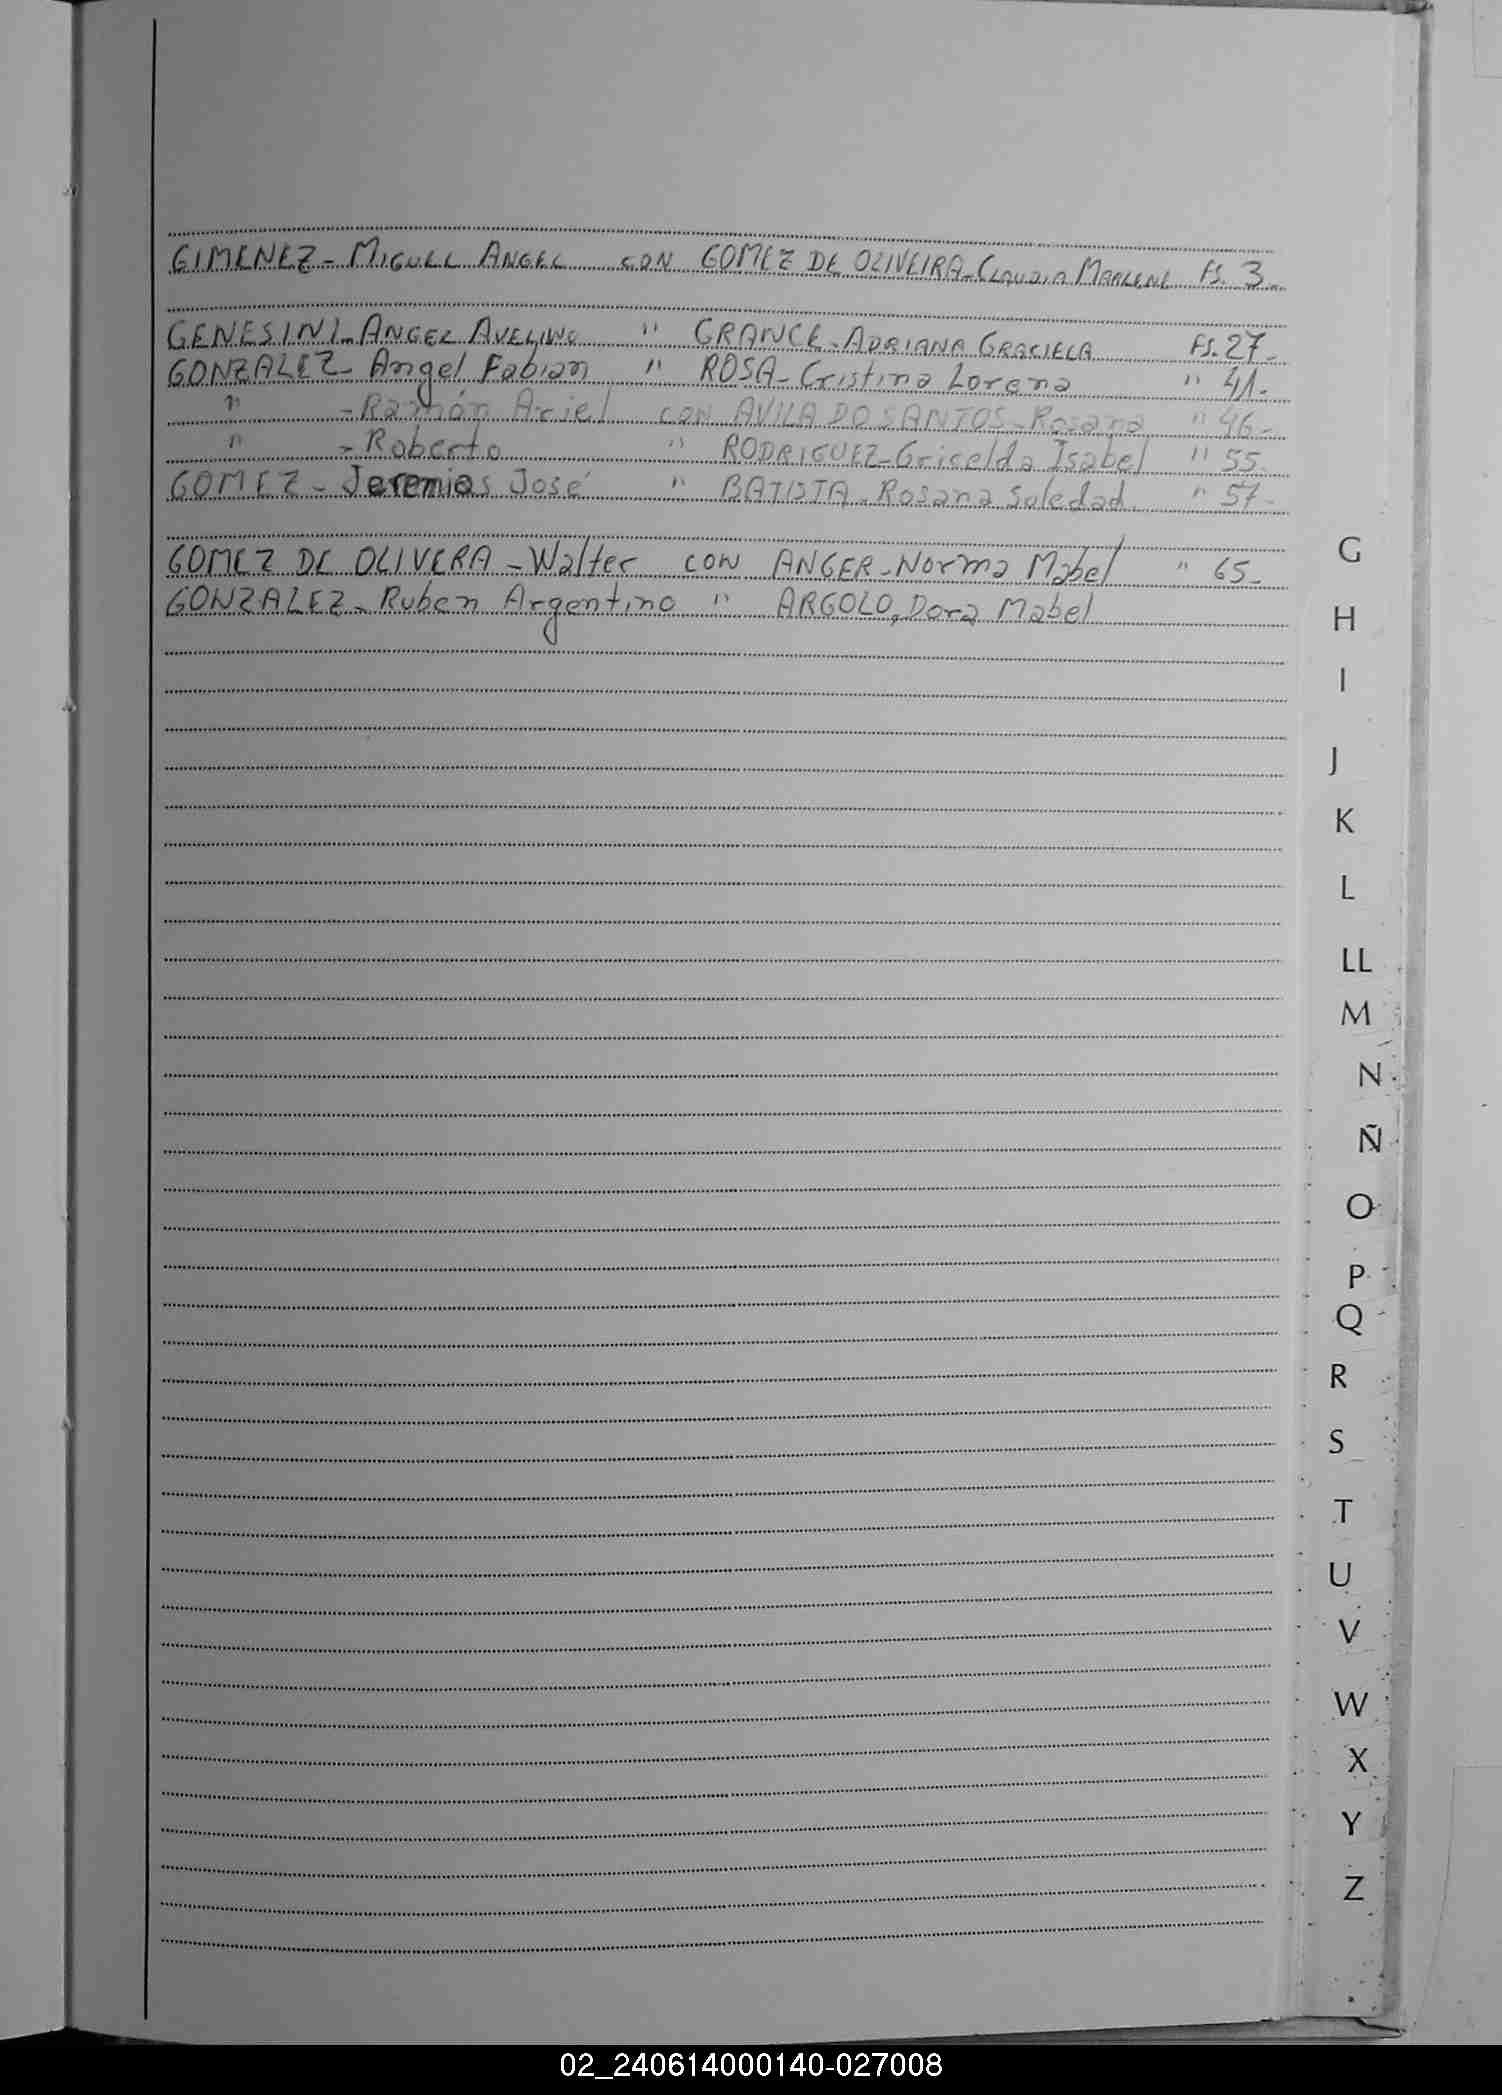 GIMENEZ - MIGUEL ANGEL CON GOMEZ DE OLIVEIRA - CLAUDIA MARLENE FS. 3 -
GENESINI - ANGEL AVELINO " GRANCE - ADRIANA GRACIELA FS. 27 -
GONZALEZ - Angel Fabian " ROSA - Cristina Lorena " 41 -
" - Ramón Ariel CON AVILA DO SANTOS - Rosana " 46 -
" - Roberto " RODRIGUEZ - Griselda Isabel " 55 -
GOMEZ - Jeremias José " BATISTA - Rosana Soledad " 57 -
GOMEZ DE OLIVERA - Walter CON ANGER - Norma Mabel " 65 -
GONZALEZ - Ruben Argentino " ARGOLO, Dora Mabel
G
H
I
J
K
L
LL
M
N
Ñ
O
P
Q
R
S
T
U
V
W
X
Y
Z
02_240614000140-027008